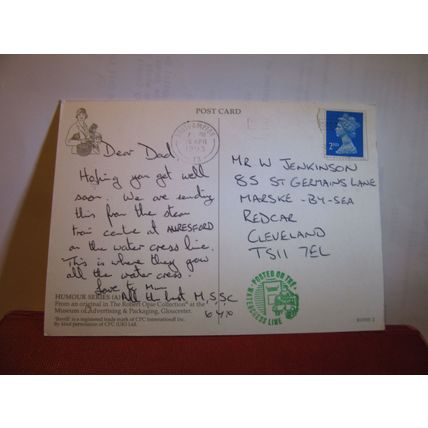 POST CARD
Dear Dad
Hoping you get well
soon. We are sending
this from the steam
train centre at ALRESFORD
on the water cress line.
This is where they grow
all the water cress.
love to Mum
All the best M, S, S, C
HUMOUR SERIES
From an original in The Robert Opie Collection at the
Museum of Advertising & Packaging, Gloucester.
'Bovril' is a registered trade mark of CPC International Inc.
By kind permission of CPC (UK) Ltd.
1993
2ND
MR W JENKINSON
85 ST GERMAINS LANE
MARSKE-BY-SEA
REDCAR
CLEVELAND
TS11 7EL
POSTED ON THE
WATERCRESS LINE